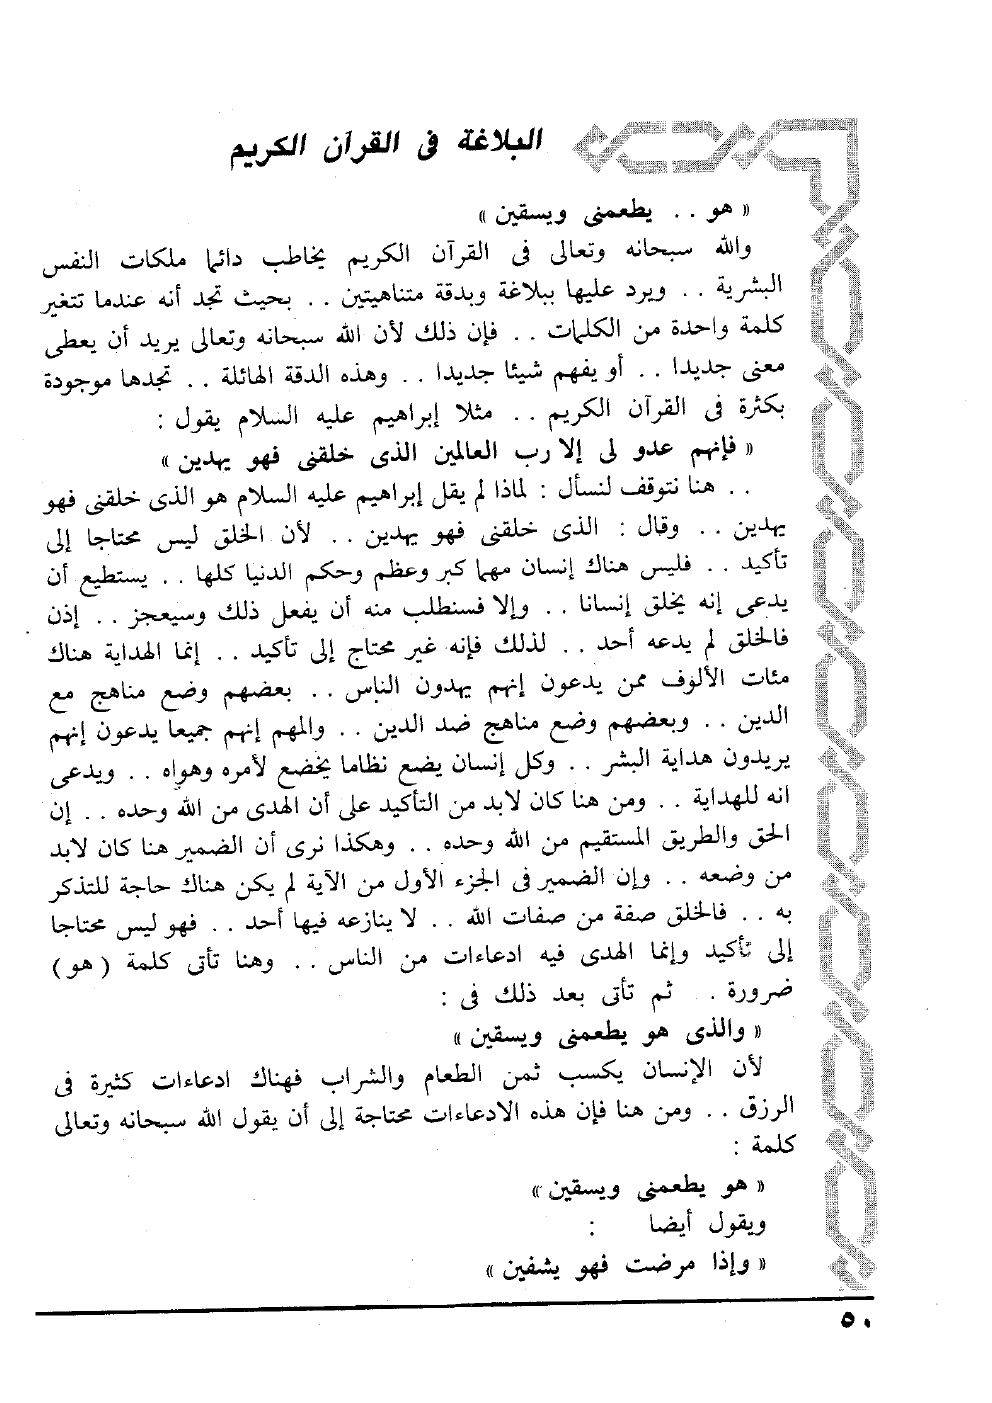 البلاغة فى القرآن الكريم
« هو .. يطعمنى ويسقين »
والله سبحانه وتعالى فى القرآن الكريم يخاطب دائما ملكات النفس
البشرية .. ويرد عليها ببلاغة وبدقة متناهيتين .. بحيث تجد أنه عندما تتغير
كلمة واحدة من الكلمات .. فإن ذلك لأن الله سبحانه وتعالى يريد أن يعطى
معنى جديدا .. أو يفهم شيئا جديدا .. وهذه الدقة الهائلة .. تجدها موجودة
بكثرة فى القرآن الكريم .. مثلا إبراهيم عليه السلام يقول :
« فإنهم عدو لى إلا رب العالمين الذى خلقنى فهو يهدين »
.. هنا نتوقف لنسأل : لماذا لم يقل إبراهيم عليه السلام هو الذى خلقنى فهو
يهدين .. وقال : الذى خلقنى فهو يهدين .. لأن الخلق ليس محتاجا إلى
تأكيد .. فليس هناك إنسان مهما كبر وعظم وحكم الدنيا كلها .. يستطيع أن
يدعى إنه يخلق إنسانا .. وإلا فسنطلب منه أن يفعل ذلك وسيعجز .. إذن
فالخلق لم يدعه أحد .. لذلك فإنه غير محتاج إلى تأكيد .. إنما الهداية هناك
مئات الألوف ممن يدعون إنهم يهدون الناس .. بعضهم وضع مناهج مع
الدين .. وبعضهم وضع مناهج ضد الدين .. والمهم إنهم جميعا يدعون إنهم
يريدون هداية البشر .. وكل إنسان يضع نظاما يخضع لأمره وهواه .. ويدعى
انه للهداية .. ومن هنا كان لابد من التأكيد على أن الهدى من الله وحده .. إن
الحق والطريق المستقيم من الله وحده .. وهكذا نرى أن الضمير هنا كان لابد
من وضعه .. وإن الضمير فى الجزء الأول من الآية لم يكن هناك حاجة للتذكر
به .. فالخلق صفة من صفات الله .. لا ينازعه فيها أحد .. فهو ليس محتاجا
إلى تأكيد وإنما الهدى فيه ادعاءات من الناس .. وهنا تأتى كلمة ( هو )
ضرورة . ثم تأتى بعد ذلك فى :
« والذى هو يطعمنى ويسقين »
لأن الإنسان يكسب ثمن الطعام والشراب فهناك ادعاءات كثيرة فى
الرزق .. ومن هنا فإن هذه الادعاءات محتاجة إلى أن يقول الله سبحانه وتعالى
كلمة :
« هو يطعمنى ويسقين »
ويقول أيضا :
« وإذا مرضت فهو يشفين »
٥٠